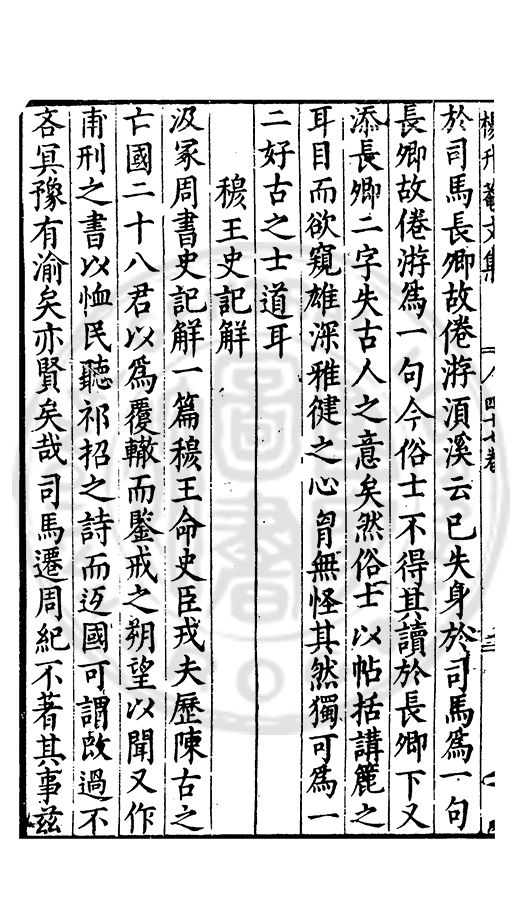 楊升菴文集 四十七卷
於司馬長卿故倦游湏溪云已失身於司馬爲一句
長卿故倦游爲一句今俗士不得其讀於長卿下又
添長卿二字失古人之意矣然俗士以帖括講麓之
耳目而欲窺雄深雅徤之心胷無怪其然獨可爲一
二好古之士道耳
穆王史記解
汲冢周書史記解一篇穆王命史臣戎夫歷陳古之
亡國二十八君以爲覆轍而鑒戒之朔望以聞又作
甫刑之書以恤民聽祁招之詩而返國可謂改過不
吝冥豫有渝矣亦賢矣哉司馬遷周紀不著其事茲